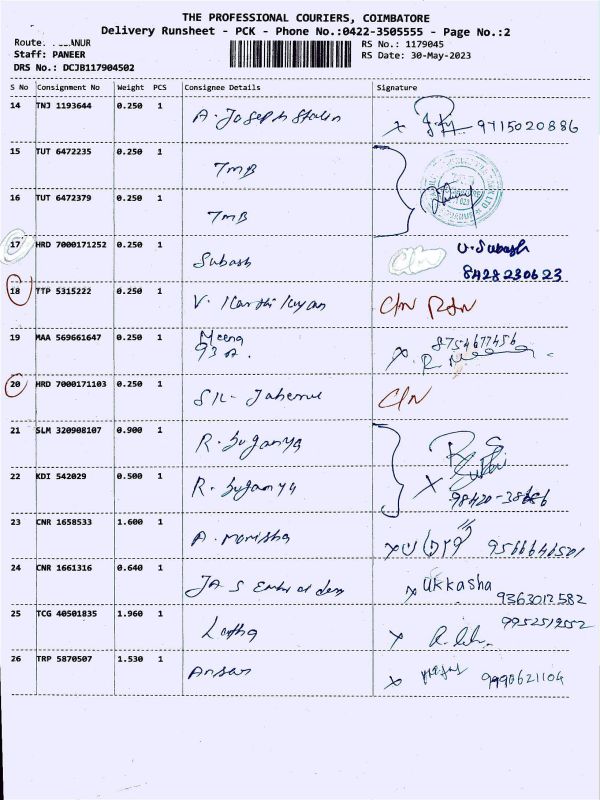 THE PROFESSIONAL COURIERS, COIMBATORE
Delivery Runsheet - PCK - Phone No.:0422-3505555 - Page No.:2
Route. ANUR
RS No.: 1179045
Staff: PANEER
RS Date: 30-May-2023
DRS No.: DCJB117904502
S No Consignment No Weight PCS Consignee Details Signature
14 TNJ 1193644 0.250 1 A. Joseph Stalin x 9715020886
15 TUT 6472235 0.250 1 TMB
16 TUT 6472379 0.250 1 TMB
17 HRD 7000171252 0.250 1 Subash C/N V. Subash
8428230623
18 TTP 5315222 0.250 1 V. Karthikayan C/N
19 MAA 569661647 0.250 1 Meena x 8754677456
93 R. Meena
20 HRD 7000171103 0.250 1 C/N
21 SLM 320908107 0.900 1 R. Suganya
22 KDI 542029 0.500 1 R. Suganya x
98420-38686
23 CNR 1658533 1.600 1 A. Monisha x 9566646501
24 CNR 1661316 0.640 1 JA S x Ukkasha
9363012582
25 TCG 40501835 1.960 1 Latha x 9952519552
26 TRP 5870507 1.530 1 Ansar x 9990621104